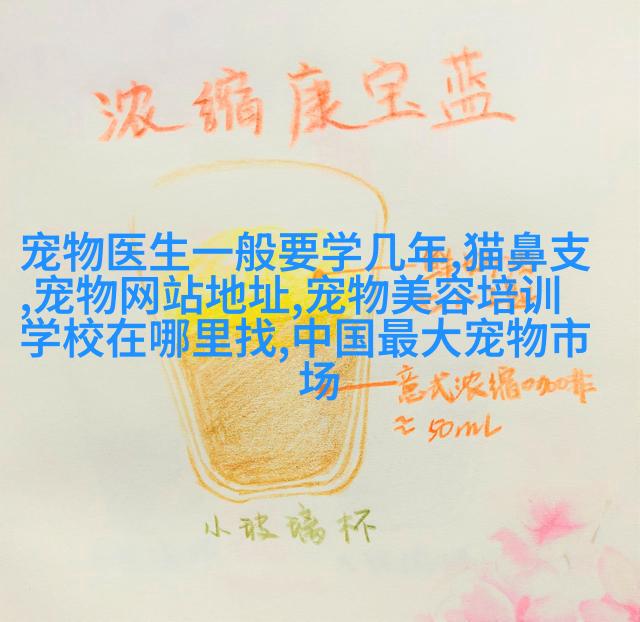 浓缩康宝蓝
宠物医生一般要学几年,猫鼻支
,宠物网站地址,宠物美容培训
学校在哪里找,中国最大宠物市
场
意式浓缩咖啡
≈50mL
小玻璃杯